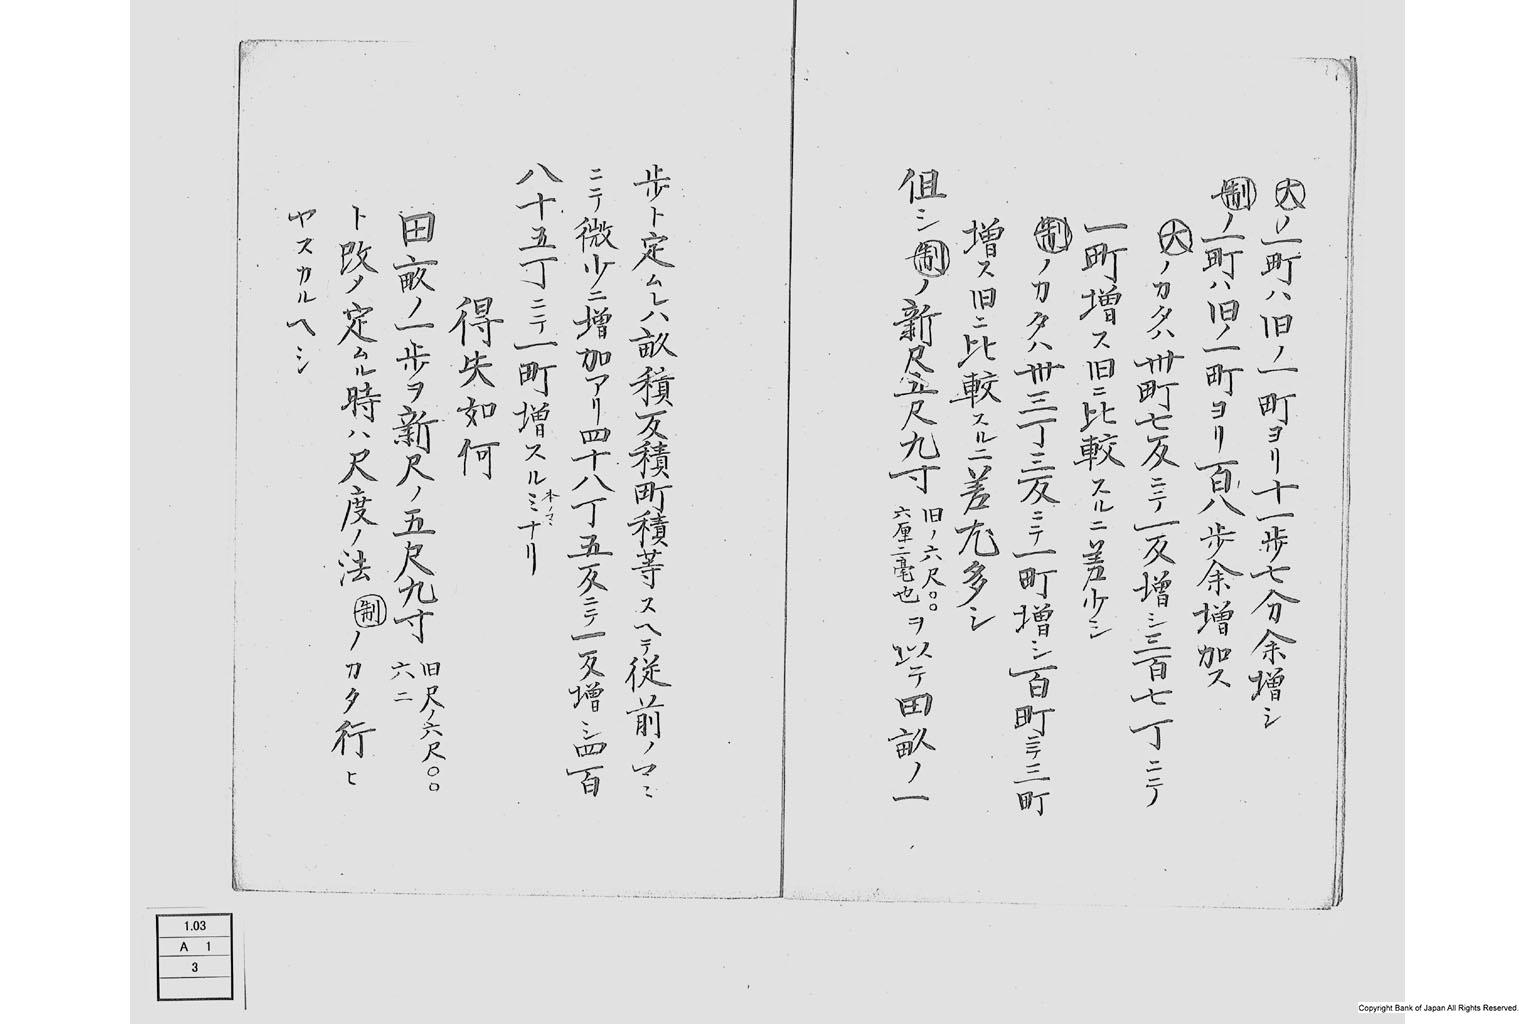 ㊅ノ一町ハ旧ノ一町ヨリ十一歩七分余増シ
制ノ一町ハ旧ノ一町ヨリ百八歩余増加ス
大ノカタハ卅町七反ニテ一反増シ三百七丁ニテ
一町増ス旧ニ比較スルニ差少シ
制ノカタハ卅三丁三反ニテ一町増シ百町ニテ三町
増ス旧ニ比較スルニ差尤多シ
但シ制ノ新尺五尺九寸旧ノ六尺〇〇六厘二毫也ヲ以テ田畝ノ一
歩ト定ムレハ畝積反積町積等スヘテ従前ノマミ
ニテ微少ニ増加アリ四十八丁五反ニテ一反増シ四百
八十五丁ニテ一町増スルミナリ
本ノマミ
得失如何
田畝ノ一歩ヲ新尺ノ五尺九寸旧尺ノ六尺〇〇六二
ト改メ定ムル時ハ尺度ノ法制ノカタ行ヒ
ヤスカルヘシ
1.03
A 1
3
Copyright Bank of Japan All Rights Reserved.